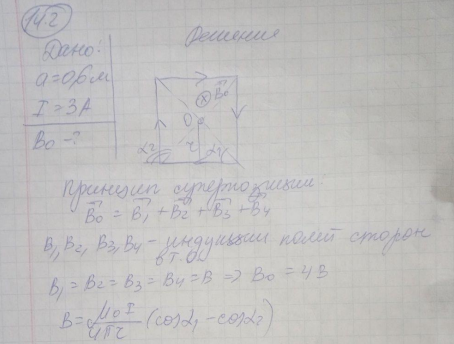 14.2
Дано:
a = 0,6 м
I = 3 А
B₀ - ?
Решение
B⃗₀
O
r
α₂
α₁
Принцип суперпозиции:
B⃗₀ = B⃗₁ + B⃗₂ + B⃗₃ + B⃗₄
B₁, B₂, B₃, B₄ – индукции полей сторон
в т. О
B₁ = B₂ = B₃ = B₄ = B ⇒ B₀ = 4B
B = μ₀I / 4πr (cosα₁ − cosα₂)